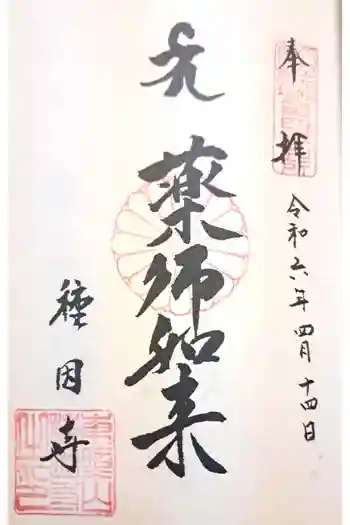 奉拝
令和六年四月十四日
薬師如来
種因寺